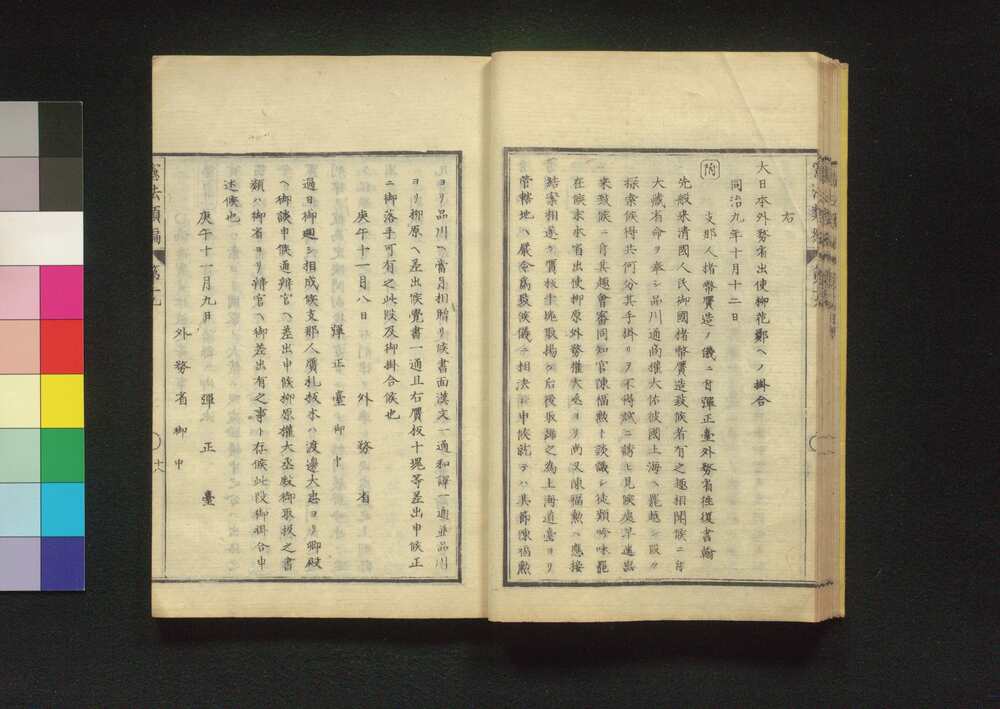 右
大日本外務省出使柳花鄭ヘノ掛合
同治九年十月十二日
附 支那人楮幣贋造ノ儀ニ付彈正臺外務省往復書翰
先般来清國人民御國楮幣贋造致候者有之趣相聞候ニ付
大藏省命ヲ奉シ品川通商權大佑彼國上海ヘ罷越シ嚴々
探索候得共何分其手掛リヲ不得誠ニ
来致候ニ付其趣會審同知官陳福勲ト談議シ徒類吟味罷
在候末本省出使柳原外務權大丞ヨリ尚又陳福勲ヘ應接
結案相遂ケ贋札板
管轄地ヘ嚴令為致候儀ニ相決シ申候就テハ其節陳福勲
ヨリ品川ヘ當
ヨリ柳原ヘ差出候覺書一通且右贋板十塊等差出申候正
ニ御落手可有之此段及御掛合候也
庚午十一月八日 外務省
彈正臺 御中
過日御廻シ相成候支那人贋札板木ハ渡邊大忠ヨリ卿殿
ヘ御談申候通辨官ヘ差出申候柳原權大丞殿御取扱之書
類ハ御省ヨリ辨官ヘ御差出有之事ト存候此段御掛合申
述候也
庚午十一月九日 彈正臺
外務省 御中
憲法類編 第十九
十八